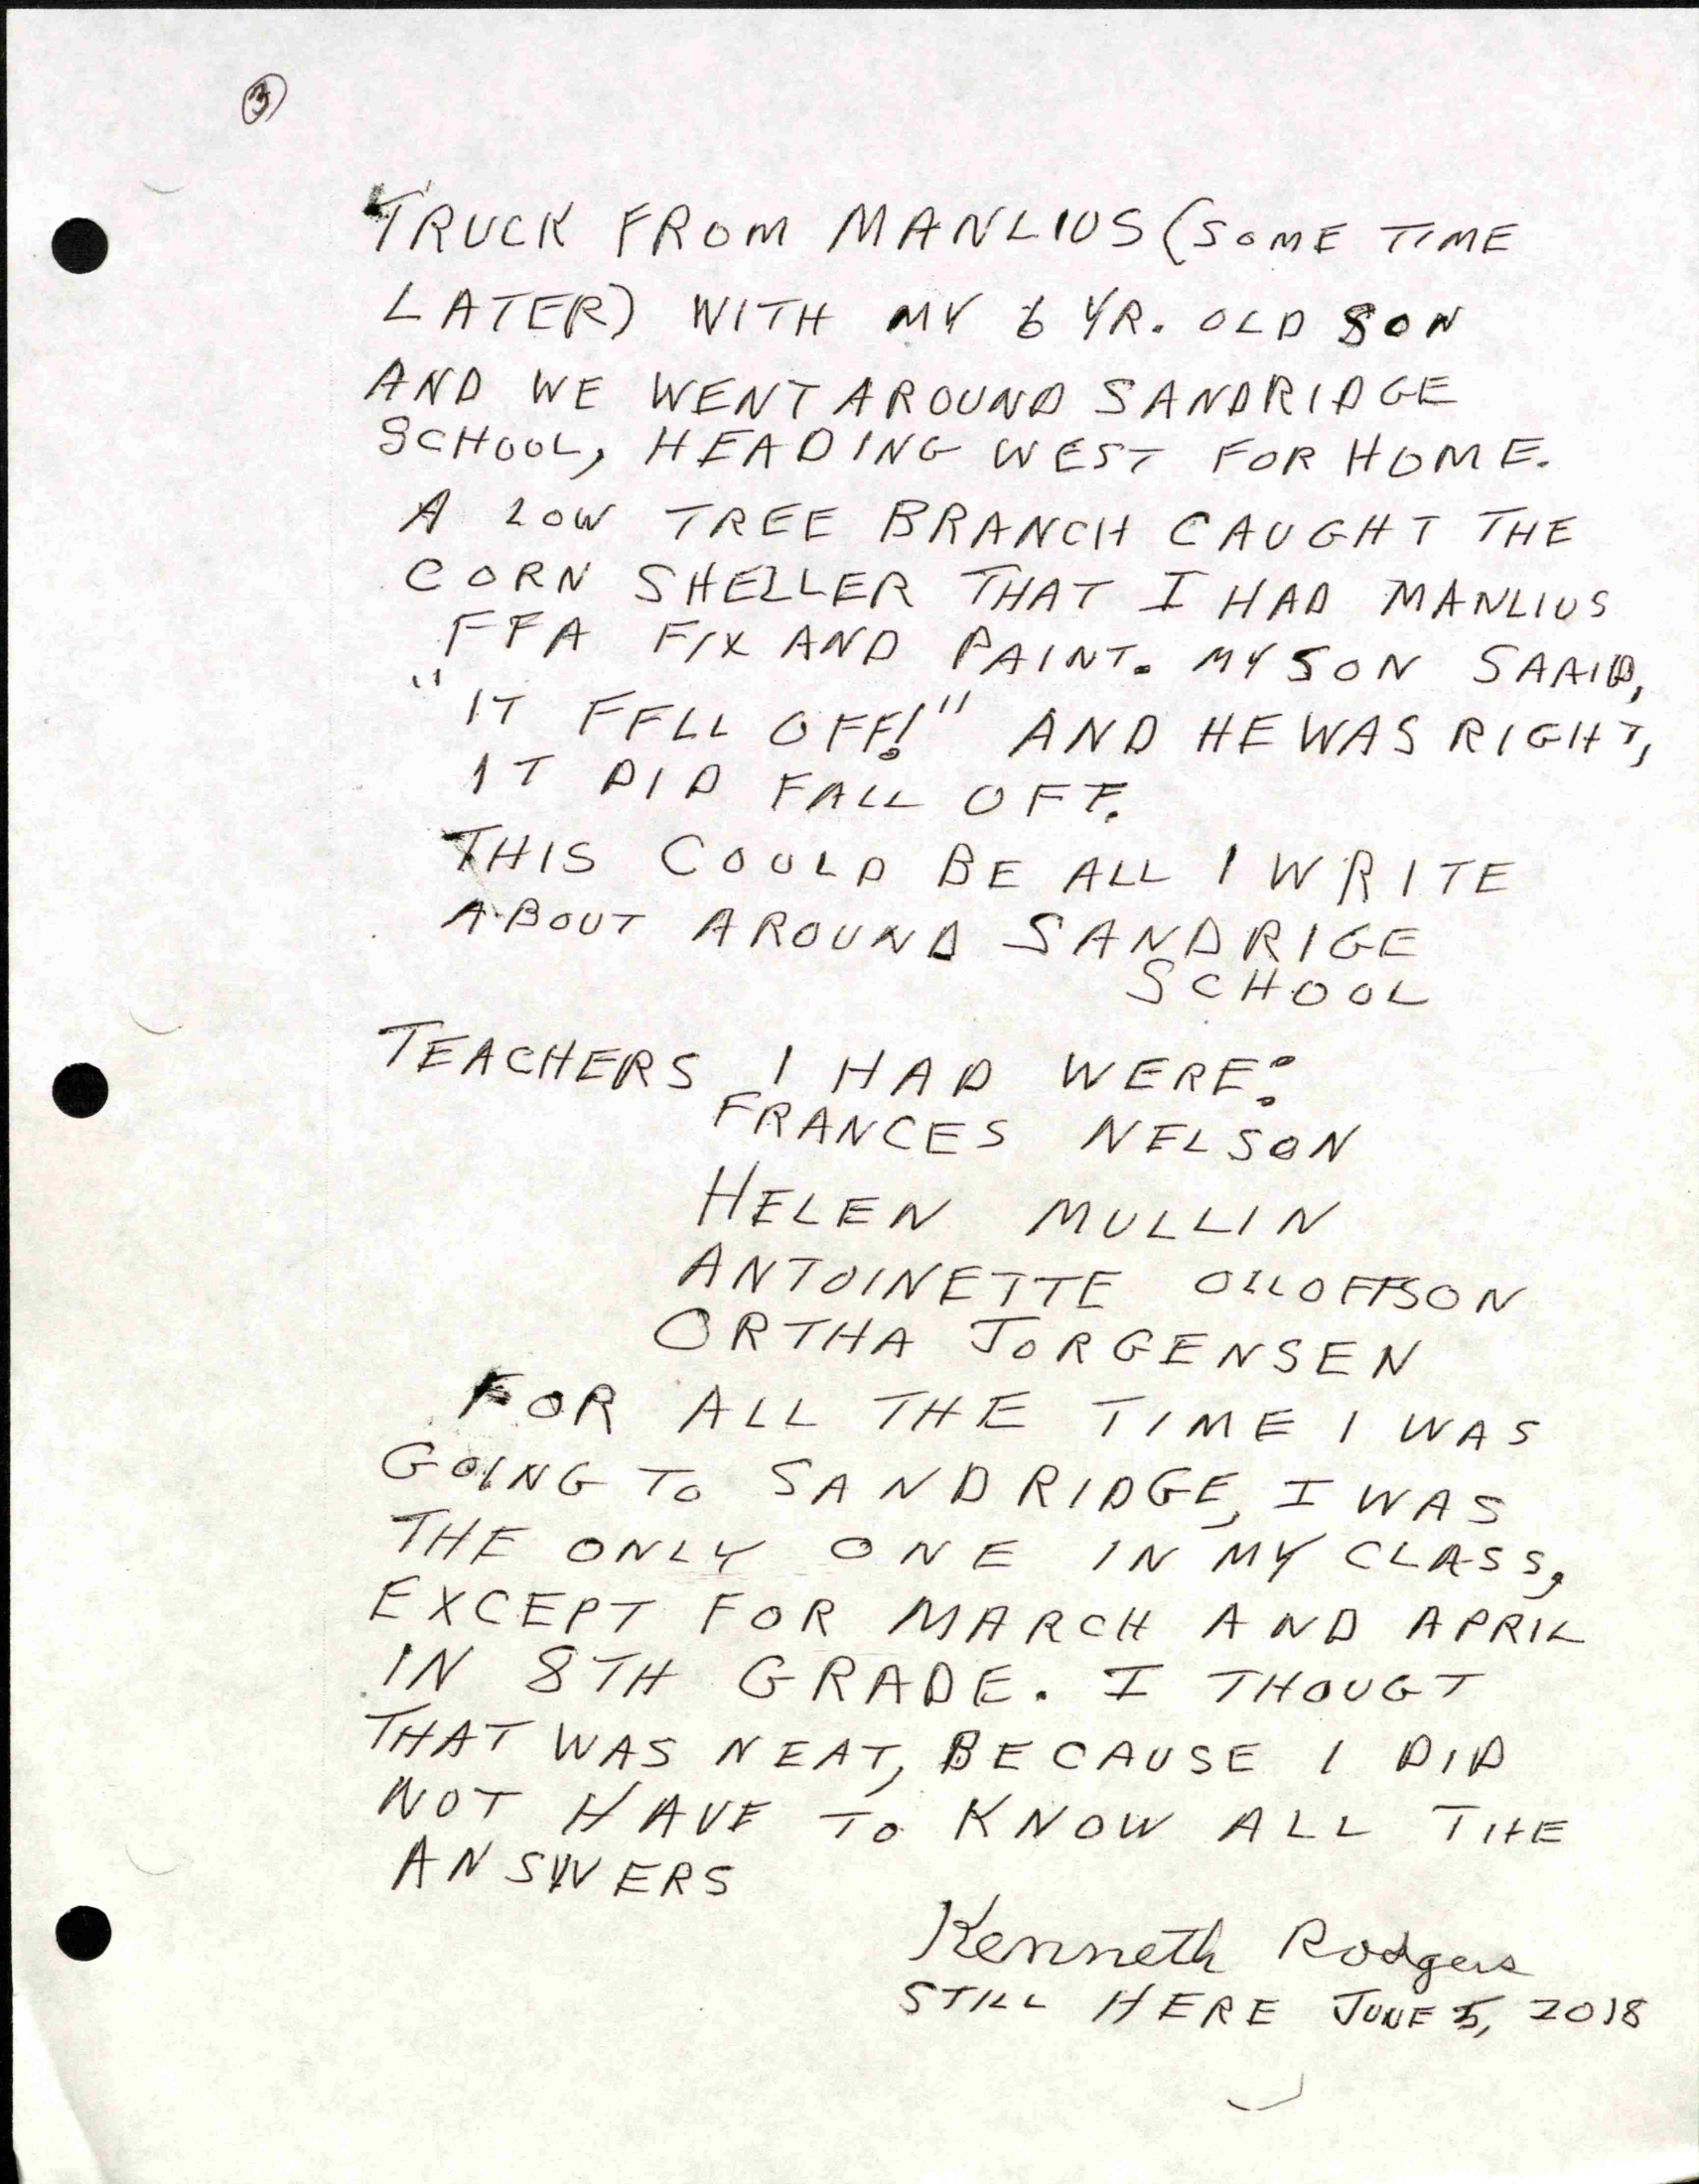 3
TRUCK FROM MANLIUS (SOME TIME
LATER) WITH MY 6 YR. OLD SON
AND WE WENT AROUND SANDRIDGE
SCHOOL, HEADING WEST FOR HOME.
A LOW TREE BRANCH CAUGHT THE
CORN SHELLER THAT I HAD MANLIUS
FFA FIX AND PAINT. MY SON SAAID,
"IT FELL OFF!" AND HE WAS RIGHT,
IT DID FALL OFF.
THIS COULD BE ALL I WRITE
ABOUT AROUND SANDRIGE
SCHOOL
TEACHERS I HAD WERE:
FRANCES NELSON
HELEN MULLIN
ANTOINETTE OLLOFFSON
ORTHA JORGENSEN
FOR ALL THE TIME I WAS
GOING TO SANDRIDGE, I WAS
THE ONLY ONE IN MY CLASS,
EXCEPT FOR MARCH AND APRIL
IN 8TH GRADE. I THOUGT
THAT WAS NEAT, BECAUSE I DID
NOT HAVE TO KNOW ALL THE
ANSWERS
Kenneth Rodgers
STILL HERE JUNE 5, 2018